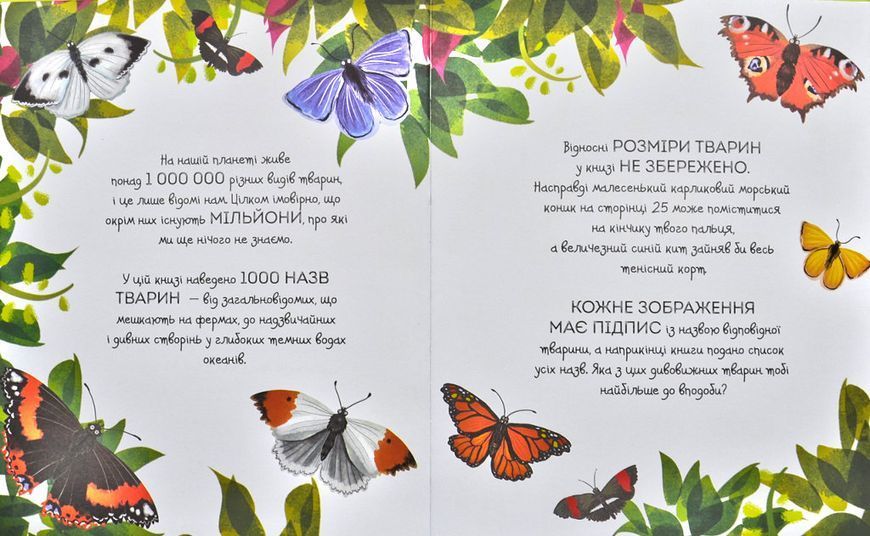 На нашій планеті живе
понад 1 000 000 різних видів тварин,
і це лише відомі нам. Цілком імовірно, що
окрім них існують МІЛЬЙОНИ, про які
ми ще нічого не знаємо.
У цій книзі наведено 1000 НАЗВ
ТВАРИН — від загальновідомих, що
мешкають на фермах, до надзвичайних
і дивних створінь у глибоких темних водах
океанів.
Відносні РОЗМІРИ ТВАРИН
у книзі НЕ ЗБЕРЕЖЕНО.
Насправді малесенький карликовий морський
коник на сторінці 25 може поміститися
на кінчику твого пальця,
а величезний синій кит зайняв би весь
тенісний корт.
КОЖНЕ ЗОБРАЖЕННЯ
МАЄ ПІДПИС із назвою відповідної
тварини, а наприкінці книги подано список
усіх назв. Яка з цих дивовижних тварин тобі
найбільше до вподоби?